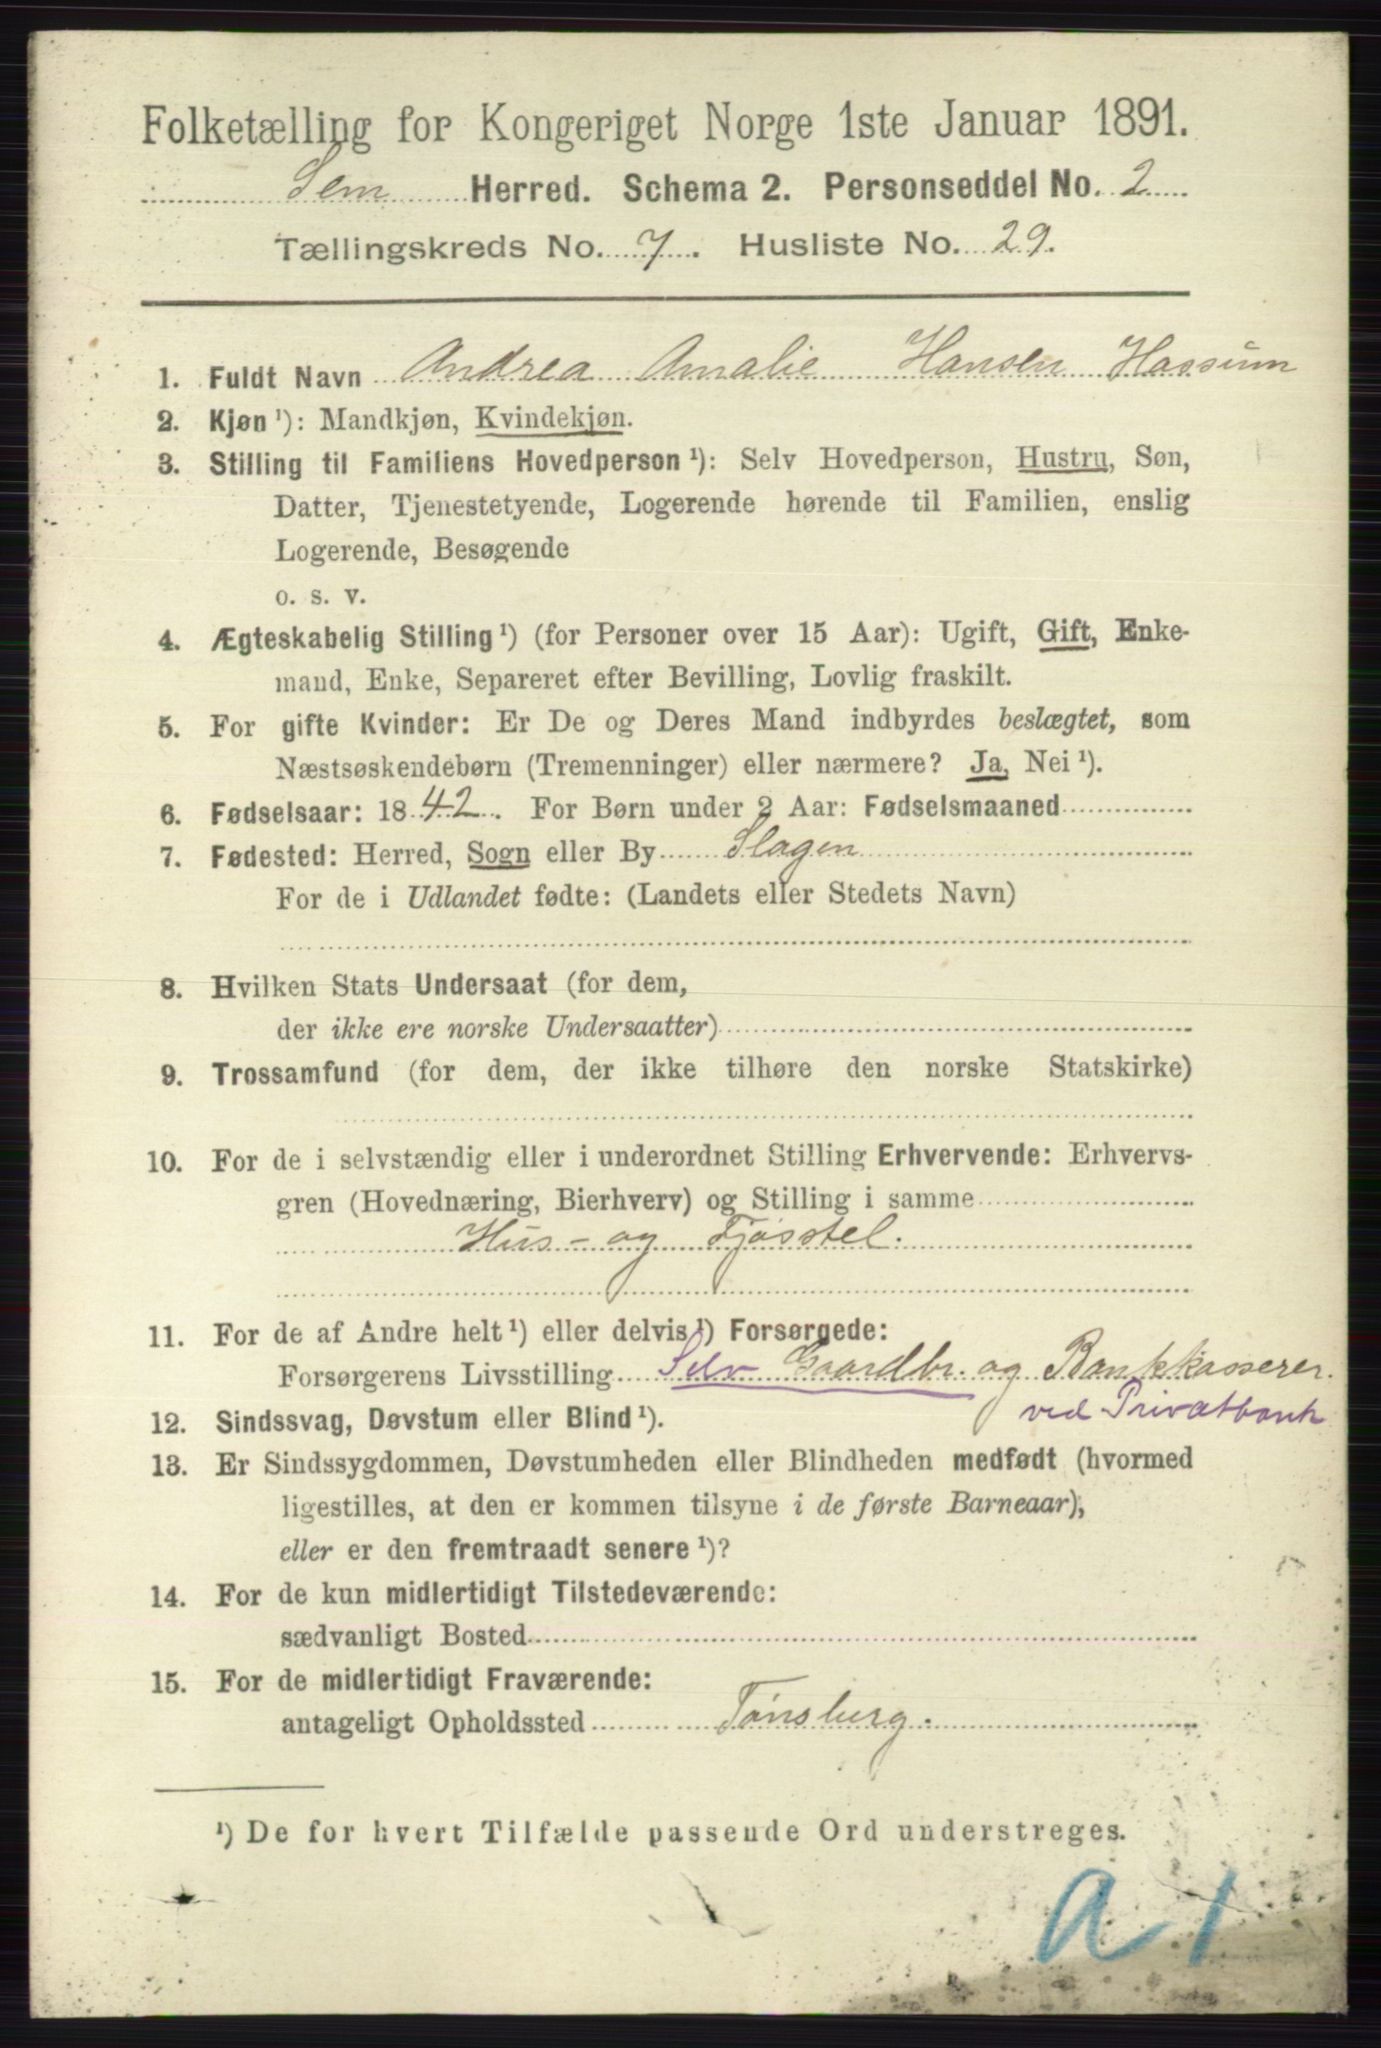 Folketælling for Kongeriget Norge 1ste Januar 1891.
Sem Herred. Schema 2. Personseddel No. 2
Tællingskreds No. 7. Husliste No. 29.
1. Fuldt Navn Andrea Amalie Hansen Hassum
2. Kjøn ¹): Mandkjøn, Kvindekjøn.
3. Stilling til Familiens Hovedperson ¹): Selv Hovedperson, Hustru, Søn,
Datter, Tjenestetyende, Logerende hørende til Familien, enslig
Logerende, Besøgende
o. s. v.
4. Ægteskabelig Stilling ¹) (for Personer over 15 Aar): Ugift, Gift, Enke-
mand, Enke, Separeret efter Bevilling, Lovlig fraskilt.
5. For gifte Kvinder: Er De og Deres Mand indbyrdes beslægtet, som
Næstsøskendebørn (Tremenninger) eller nærmere? Ja, Nei ¹).
6. Fødselsaar: 1842. For Børn under 2 Aar: Fødselsmaaned
7. Fødested: Herred, Sogn eller By Slagen
For de i Udlandet fødte: (Landets eller Stedets Navn)
8. Hvilken Stats Undersaat (for dem,
der ikke ere norske Undersaatter)
9. Trossamfund (for dem, der ikke tilhøre den norske Statskirke)
10. For de i selvstændig eller i underordnet Stilling Erhvervende: Erhvervs-
gren (Hovednæring, Bierhverv) og Stilling i samme
Hus- og Fjøsstel.
11. For de af Andre helt ¹) eller delvis ¹) Forsørgede:
Forsørgerens Livsstilling Selv Gaardbr. og Bankkasserer.
ved Privatbank
12. Sindssvag, Døvstum eller Blind ¹).
13. Er Sindssygdommen, Døvstumheden eller Blindheden medfødt (hvormed
ligestilles, at den er kommen tilsyne i de første Barneaar),
eller er den fremtraadt senere ¹)?
14. For de kun midlertidigt Tilstedeværende:
sædvanligt Bosted
15. For de midlertidigt Fraværende:
antageligt Opholdssted Tønsberg.
¹) De for hvert Tilfælde passende Ord understreges.
a 1